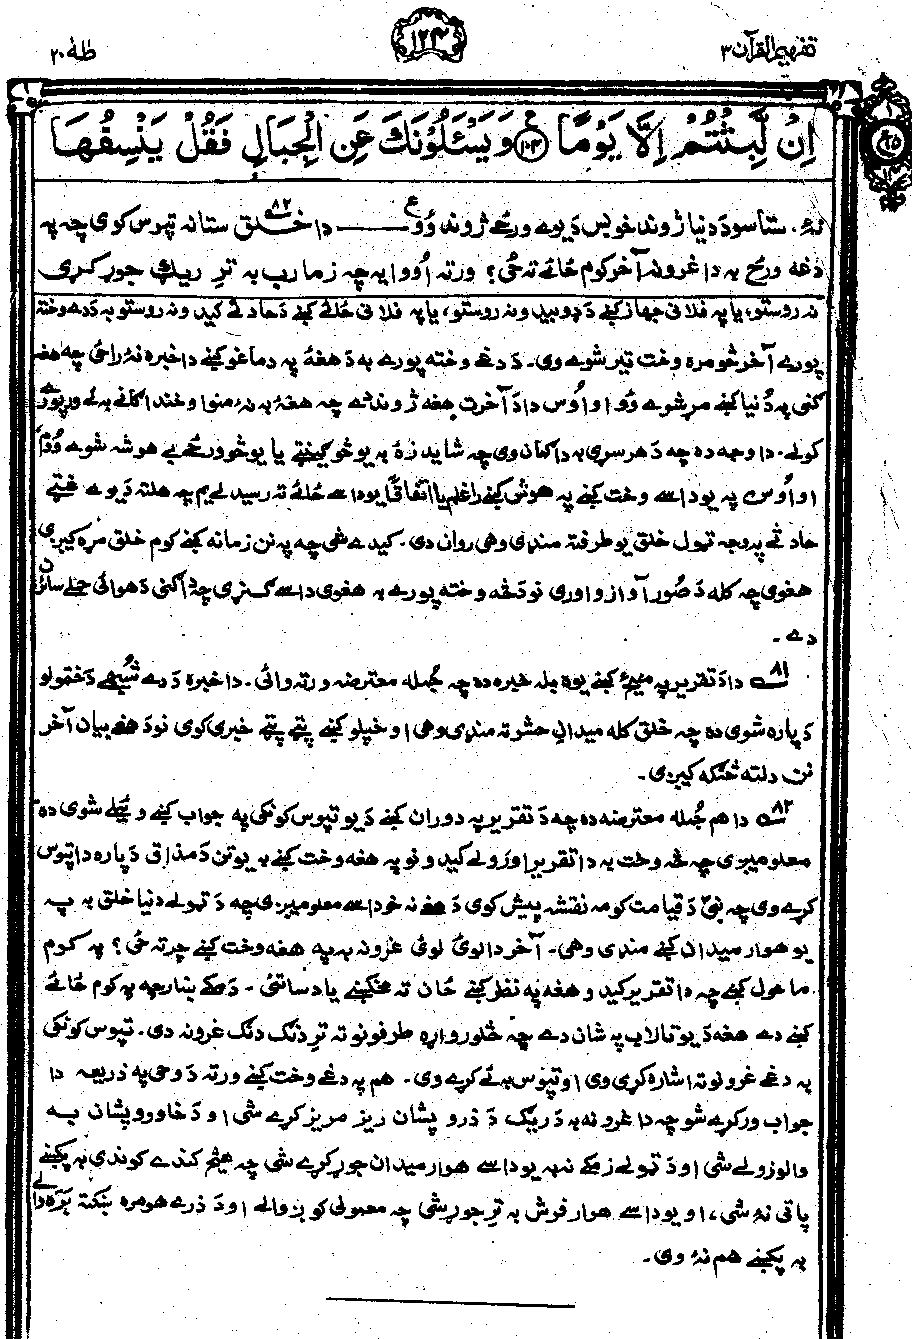 تفہیم القرآن ۳
۱۲۴
طٰهٰ ۲۰
اِنْ لَّبِثْتُمْ اِلَّا يَوْمًا ﴿۱۰۴﴾ وَيَسْـَٔلُوْنَكَ عَنِ الْجِبَالِ فَقُلْ يَنْسِفُهَا
نۀ. ستاسو دَ دنیا ژوند خو بس دَ یوے ورځے ژوند وُو ع —— دا خلق ۸۲ ستا نه تپوس کوی چه په
دغه ورځ به دا غرونه آخر کوم ځائے ته ځی؟ ورته اُووایه چه زما رب به ترِ ریګ جوړ کړی
نه روستو، یا په فلانی جهاز کښے دَ ډوبیدو نه روستو، یا په فلانی ځائے کښے دَ حادثے کیدو نه روستو به دَ دے وخته
پورے آخر څومره وخت تیر شوے وی. دَ دغے وخته پورے به دَ هغۀ په دماغو کښے دا خبره نۀ راځی چه هغه
ګنی په دُنیا کښے مړ شوے وُو او اوُس دا دَ آخرت هغه ژوند دے چه هغۀ به نۀ منو او خندا ګانے به ئے ورپورے
کولے. دا وجه ده چه دَ هر سړی به دا ګمان وی چه شاید زۀ به یو څو ګینټے یا یو څو ورځے بے هوشه شوے وُم
او اوُس په یو داسے وخت کښے په هوش کښے راغلم یا اتفاقًا یو داسے ځائے ته رسیدلے یم چه هلته دَ یوے غټے
حادثے په وجه ټول خلق یو طرف ته منډی وهی روان دی. کیدے شی چه په نن زمانه کښے کوم خلق مړه کیږی
هغوی چه کله دَ صُور آواز واوری نو دَ څه وخته پورے به هغوی داسے ګنړی چه دا ګنی دَ هوائی حملے سائرن
دے.
۸۱ دا دَ تقریر په مینځ کښے یوه بله خبره ده چه جُمله معترضه ورته وائی. دا خبره دَ دے شُبهے دَ ختمولو
دَ پاره شوی ده چه خلق کله میدان حشر ته منډی وهی او خپلو کښے پټے پټے خبری کوی نو دَ هغے بیان آخر
نن دلته څنګه کیږدی.
۸۲ دا هم جُمله معترضه ده چه دَ تقریر په دوران کښے دَ یو تپوس کونکی په جواب کښے وئیلے شوی ده
معلومیږی چه څه وخت به دا تقریر اورولے کیدو نو په هغه وخت کښے به یو تن دَ مذاق دَ پاره دا تپوس
کړے وی چه نبیؐ دَ قیامت کومه نقشه پیش کوی دَ هغے نه خو داسے معلومیږی چه دَ ټولے دنیا خلق به په
یو هوار میدان کښے منډی وهی. آخر دا لوئ لوئ غرونه به په هغه وخت کښے چرته ځی؟ په کوم
ماحول کښے چه دا تقریر کیدو هغه په نظر کښے ځان ته مخکښے یاد ساتئ. دَ مکے ښار چه په کوم ځائے
کښے دے هغه دَ یو تالاب په شان دے چه څلور واړه طرفونو ته ترِ دنګ دنګ غرونه دی. تپوس کونکی
به دغے غرونو ته اشاره کړی وی او تپوس به ئے کړے وی. هم په دغے وخت کښے ورته دَ وحی په ذریعه دا
جواب ورکړے شو چه دا غرونه به دَ ریګ دَ ذرو پشان ریز مریز کړے شی او دَ خاورو پشان به
والوزولے شی او دَ ټولے زمکے نه به یو داسے هوار میدان جوړ کړے شی چه هیڅ کنډے کونډی به پکښے
پاتی نۀ شی، او یو داسے هوار فرش به ترِ جوړ شی چه معمولی کوږ والے او دَ ذرے هومره ښکته بَره والے
به پکښے هم نۀ وی.